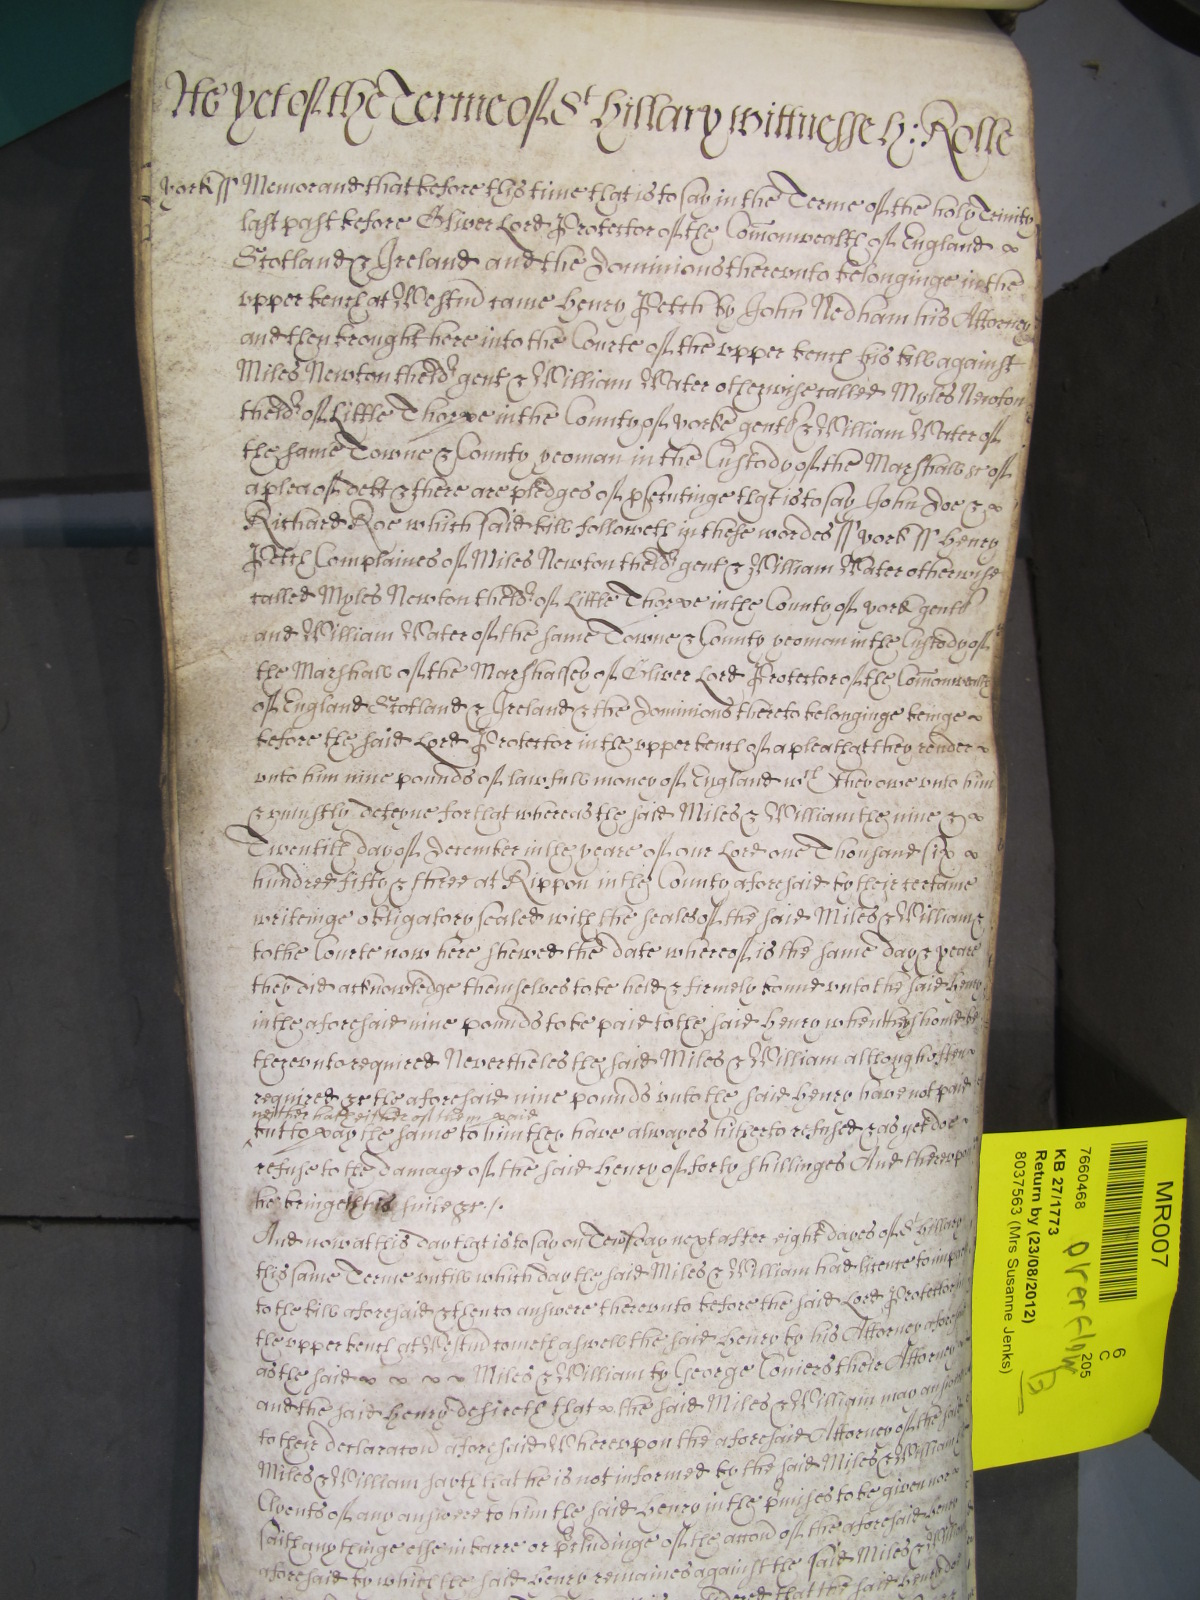 As yet of the Terme of St Hillary wittnesse H: Rolle
york ss Memorand that before this time that is to say in the Terme of the holy Trinity
last past before Oliver Lord Protector of the Comonwealth of England
Scotland & Ireland and the Dominions thereunto belonginge in the
upper bench at Westmr came Henry Petch by John Nedham his Attorney
and then brought here into the Courte of the upper bench his bill against
Miles Newton theldr gent & William Water otherwise called Myles Newton
theldr of Little Thorpe in the County of yorke gent & William Water of
the same Towne & County yeoman in the Custody of the Marshall &c of
a plea of debt & there are pledges of psecutinge that is to say John Doe &
Richard Roe which said bill followeth in these wordes ss york ss Henry
Petch Complaines of Miles Newton theldr gent & William Water otherwise
called Myles Newton theldr of Little Thorpe in the County of york gent
and William Water of the same Towne & County yeoman in the Custody of
the Marshall of the Marshalsey of Oliver Lord Protector of the Comonwealth
of England Scotland & Ireland & the Dominions thereto belonginge beinge
before the said Lord Protector in the upper bench of a plea that they render
unto him nine pounds of lawfull money of England wch they owe unto him
& uniustly deteyne for that whereas the said Miles & William the nine &
Twentith day of December in the yeare of our Lord one Thousand six
hundred fifty & three at Rippon in the County aforesaid by their certaine
writeinge obligatory sealed with the seales of the said Miles & William &
to the Courte now here shewed the date whereof is the same day & yeare
they did acknowledge themselves to be held & firmely bound unto the said Henry
in the aforesaid nine pounds to be paid to the said Henry when they should be
thereunto required Neverthelesse the said Miles & William although often
required &c the aforesaid nine pounds unto the said Henry have not paid
neither hath either of them paid
but to pay the same to him they have alwayes hitherto refused & as yet doe
refuse to the damage of the said Henry of forty shillinges And thereupon
he bringeth his suite &c /.
And now at this day that is to say on Tewsday next after eight dayes of St Hillary
this same Terme untill which day the said Miles & William had licence to imparl
to the bill aforesaid & then to answere thereunto before the said Lord Protector in
the upper bench at Westmr cometh aswell the said Henry by his Attorney aforesaid
as the said Miles & William by George Coniers their Attorney
and the said Henry desireth that the said Miles & William may answere
to their declaracon aforesaid Whereupon the aforesaid Attorney of the said
Miles & William saith that he is not informed by the said Miles & William
Clyents of any answere to him the said Henry in the pmises to be given nor
saith any thinge else in barre or pcludinge of the accon of the aforesaid Henry
aforesaid by which the said Henry remaines against the said Miles & William
that the said Henry doe
MR007
7660468
KB 27/1773
Return by (23/08/2012)
8037563 (Mrs Susanne Jenks)
6
C
205
Overflow
B